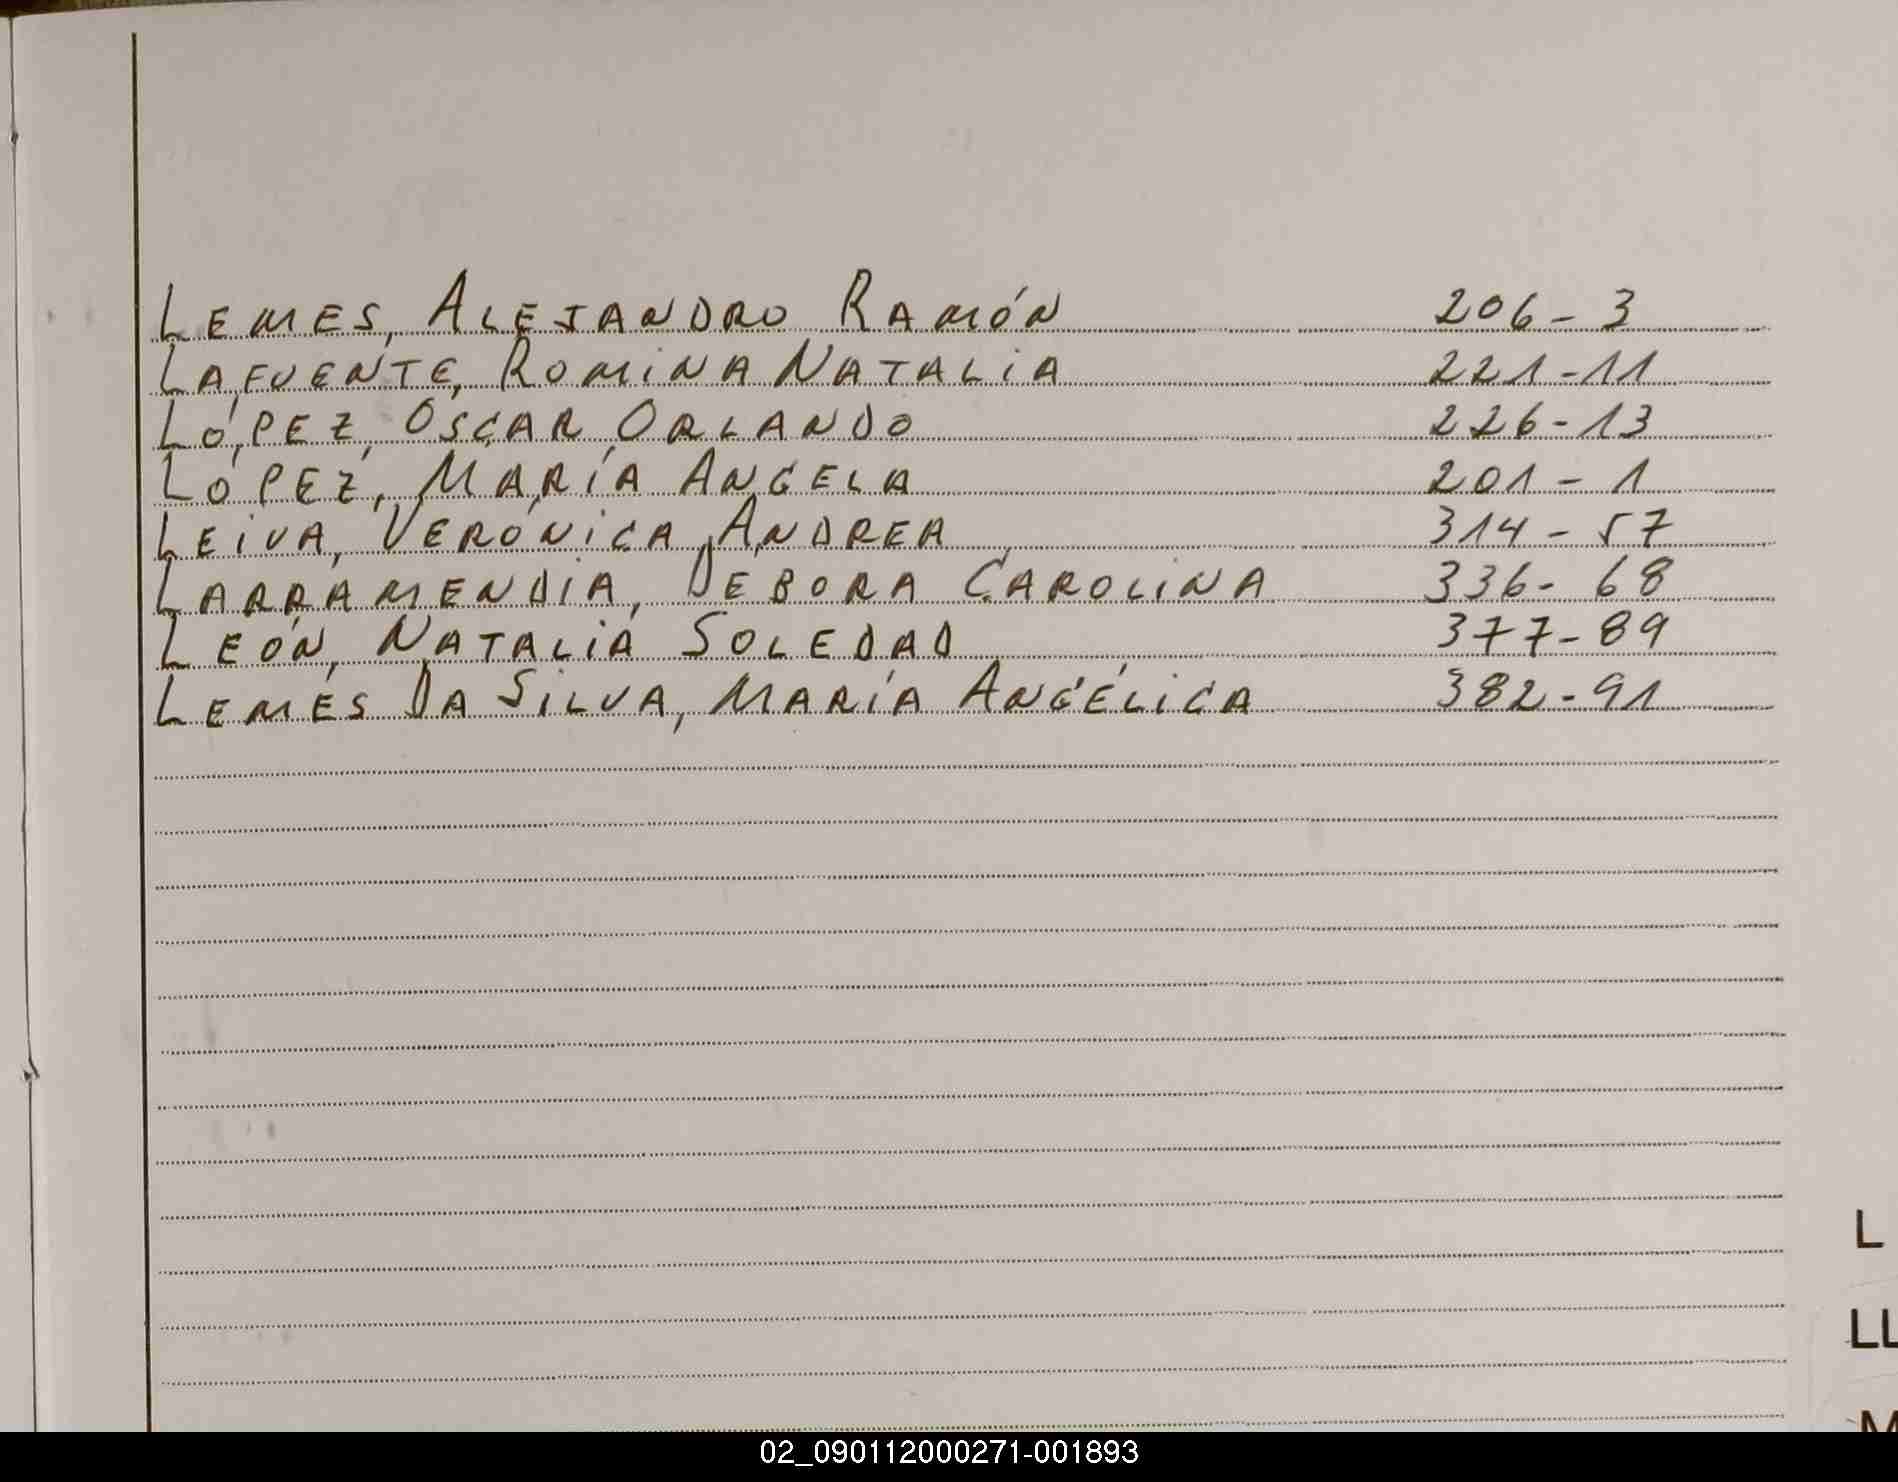 LEMES, ALEJANDRO RAMÓN 206-3
LAFUENTE, ROMINA NATALIA 221-11
LÓPEZ, OSCAR ORLANDO 226-13
LÓPEZ, MARÍA ANGELA 201-1
LEIVA, VERÓNICA ANDREA 314-57
LARRAMENDIA, DEBORA CAROLINA 336-68
LEÓN, NATALIA SOLEDAD 377-89
LEMES DA SILVA, MARÍA ANGÉLICA 382-91
L
LL
M
02_090112000271-001893